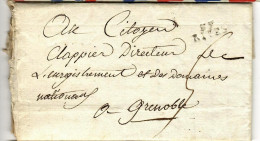 Au Citoyen
Clappier Directeur de
L'enregistrement et des domaines
nationaux
a Grenoble